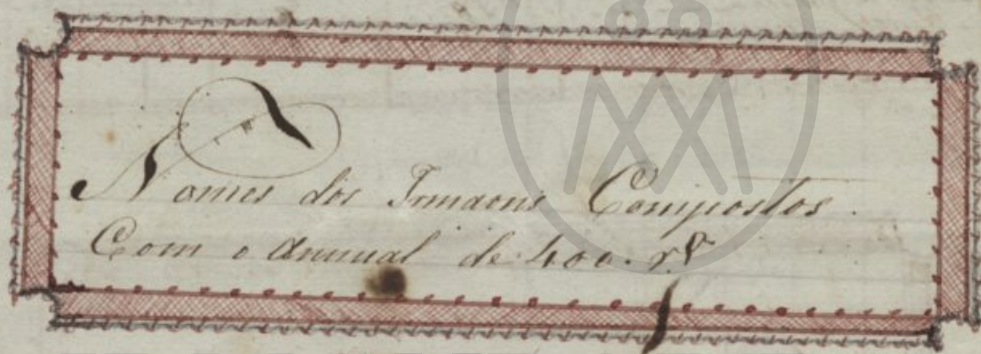 Nomes dos Irmaons Compostos.
Com o Annual de 400. r.s